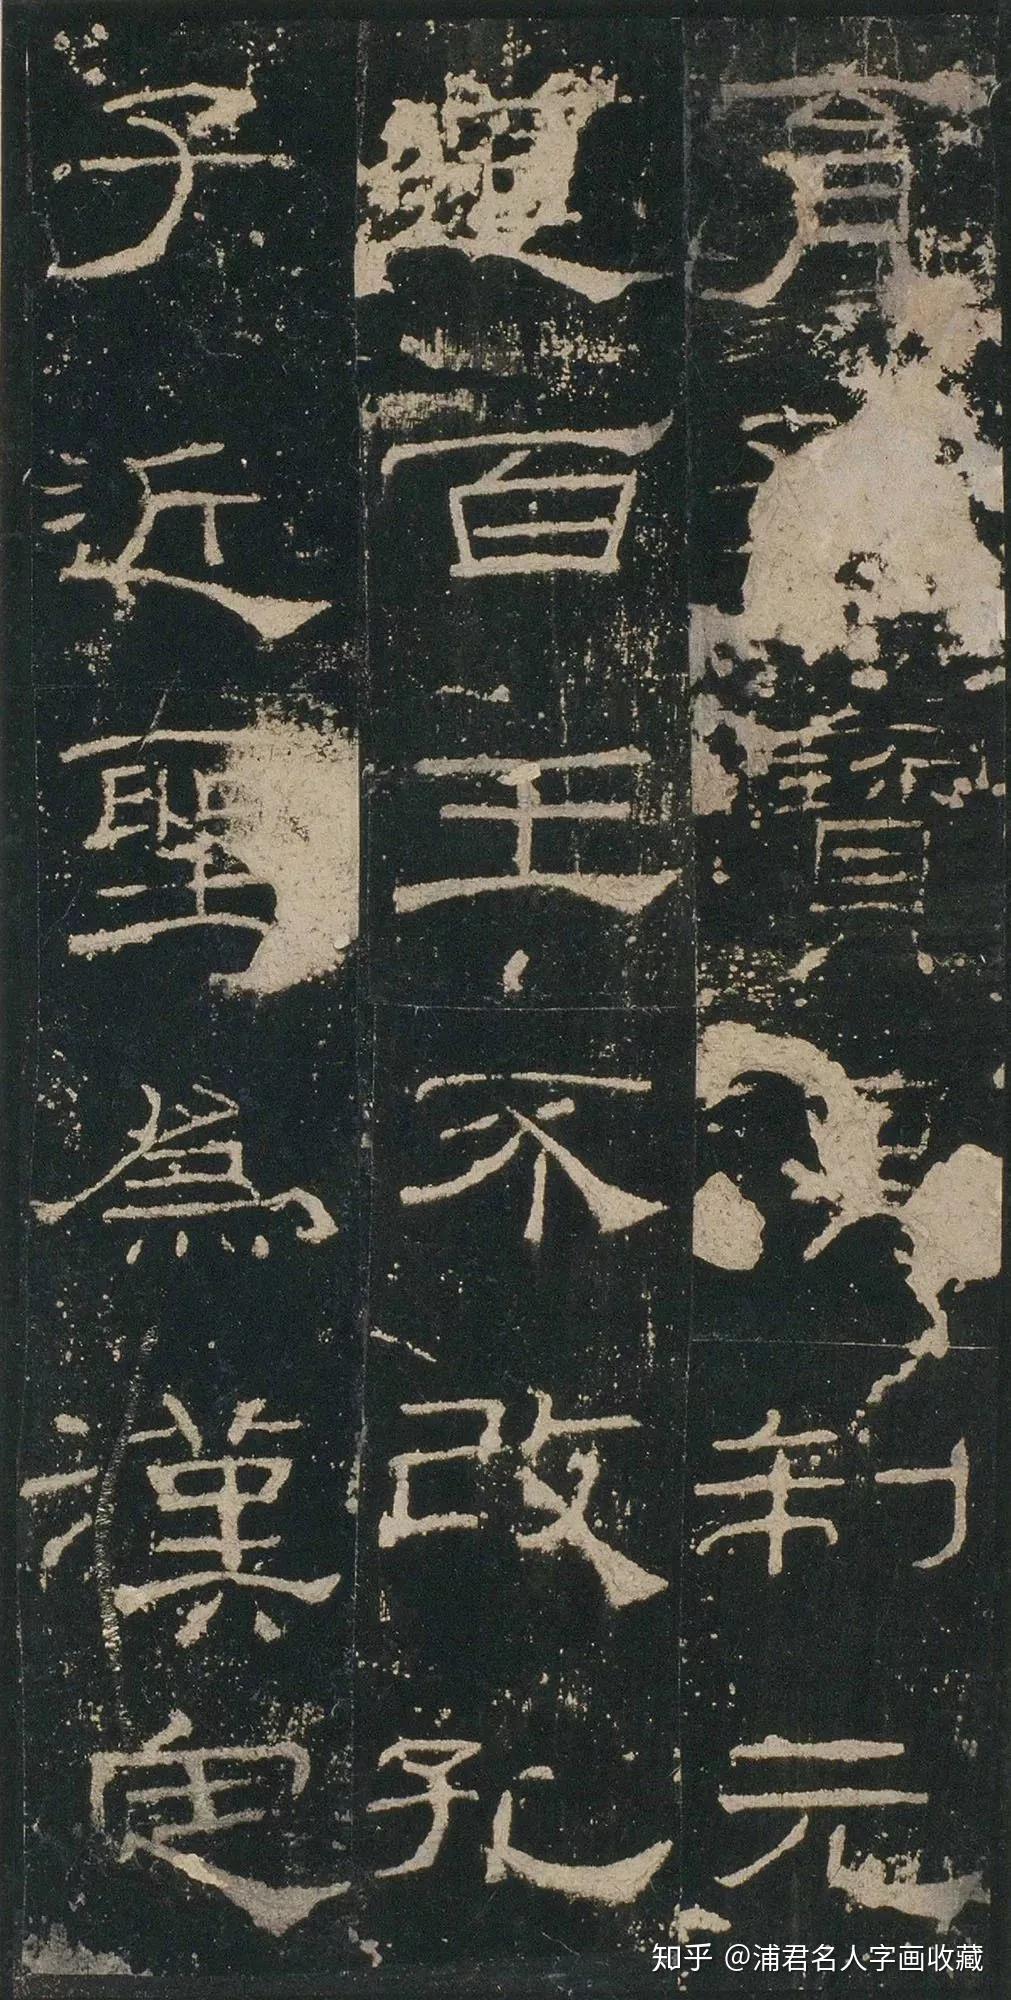 育寶制元
道百王不改孔
子近聖為漢定
知乎 @浦君名人字画收藏